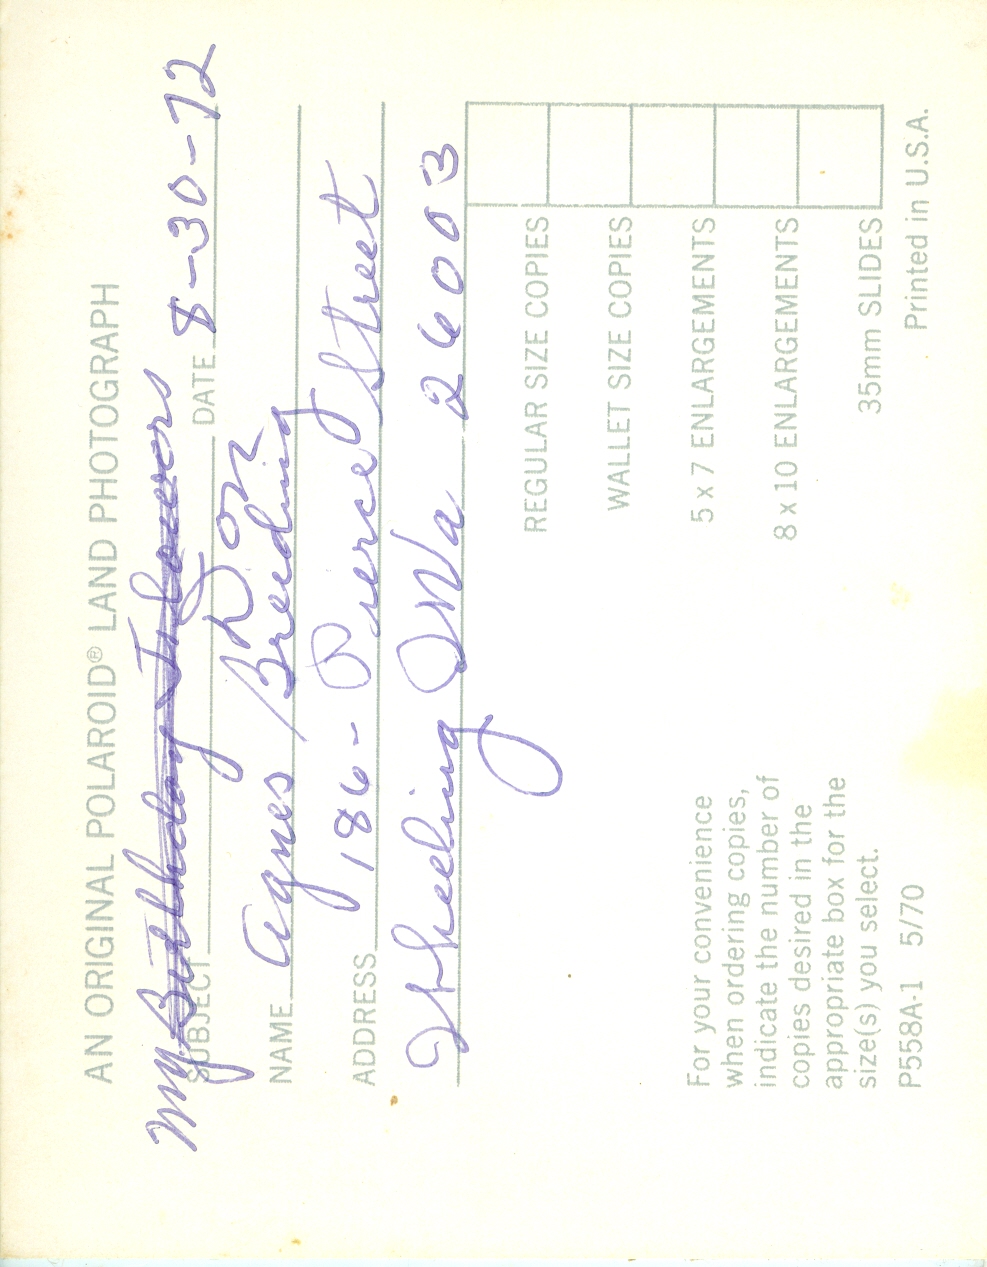 AN ORIGINAL POLAROID® LAND PHOTOGRAPH
My Birthday Flowers
SUBJECT DATE 8-30-72
Don
NAME Agnes Breeding
ADDRESS 186 - Pierce Street
Wheeling WVa 26003
REGULAR SIZE COPIES
WALLET SIZE COPIES
5 x 7 ENLARGEMENTS
8 x 10 ENLARGEMENTS
35mm SLIDES
For your convenience
when ordering copies,
indicate the number of
copies desired in the
appropriate box for the
size(s) you select.
P558A-1 5/70
Printed in U.S.A.